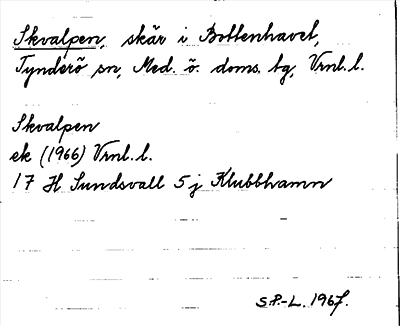 Skvalpen, skär i Bottenhavet,
Tynderö sn, Med. ö. doms. tg, Vrnl. l.
Skvalpen
ek (1966) Vrnl. l.
17 H Sundsvall 5 j Klubbhamn
S.P.-L. 1967.